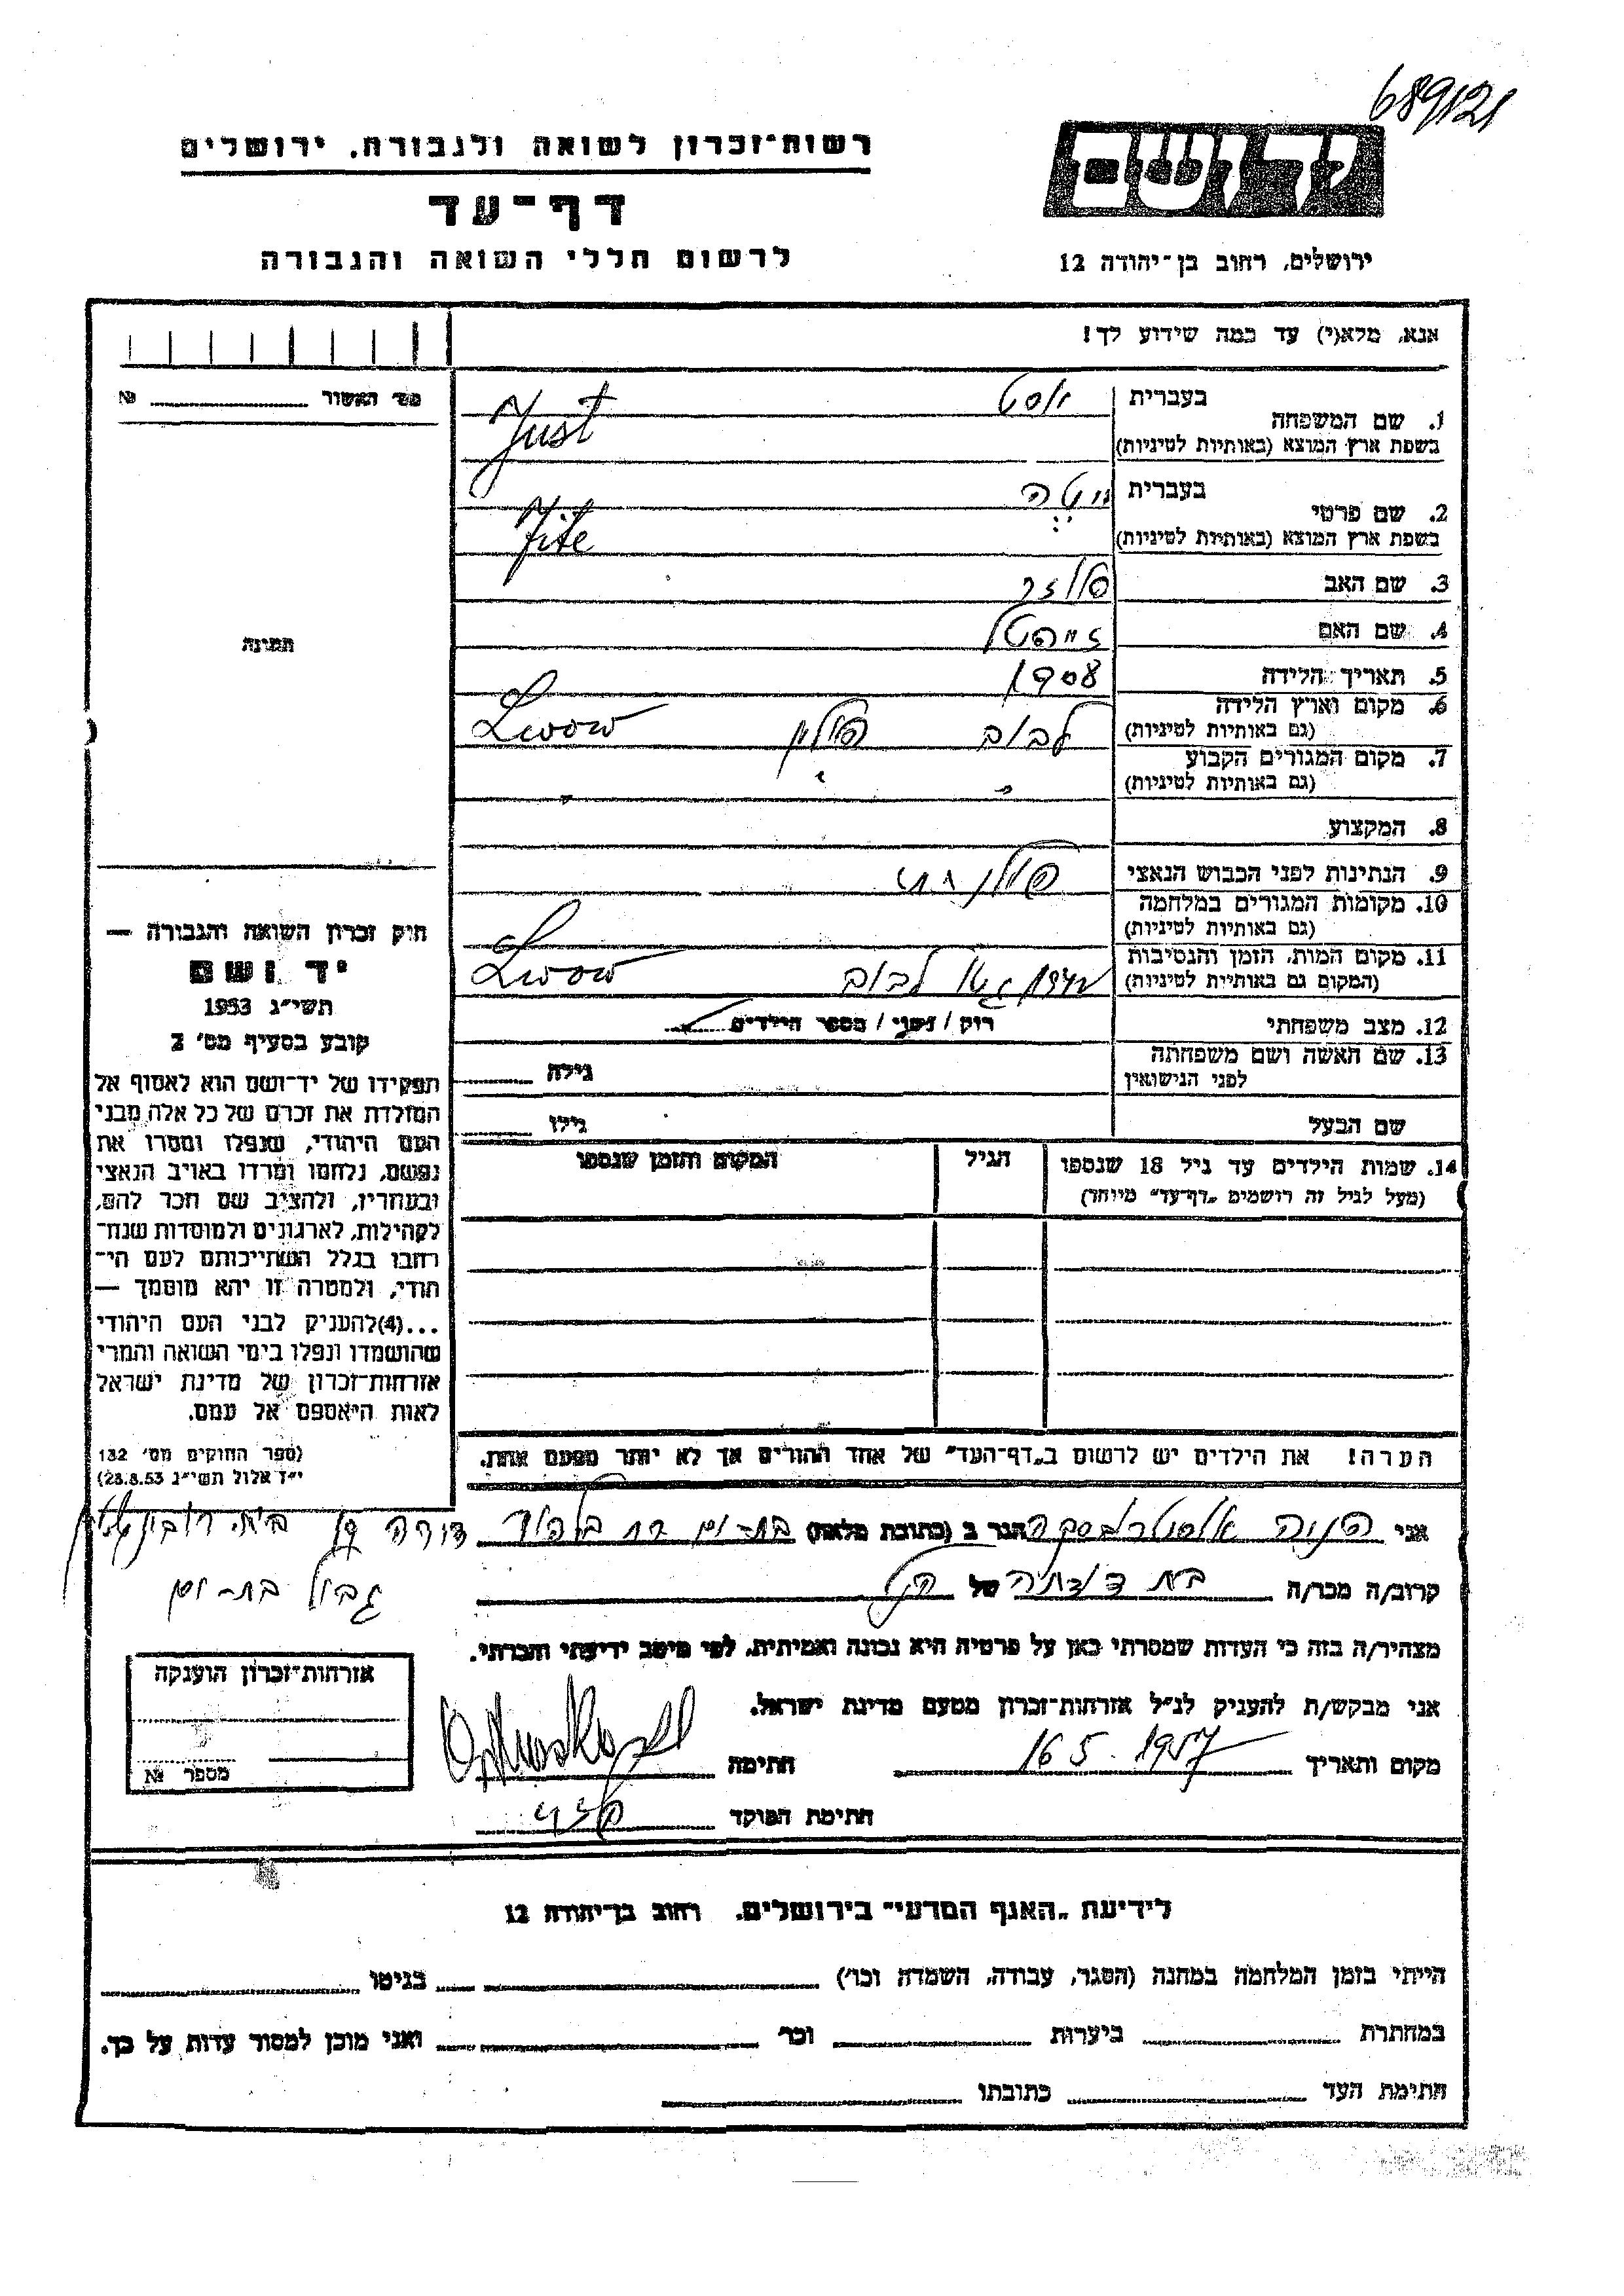 689121
רשות-זכרון לשואה ולגבורה, ירושלים
דף-עד
לרשום חללי השואה והגבורה
יד ושם
ירושלים, רחוב בן-יהודה 12
אנא, מלא(י) עד כמה שידוע לך!
מס' האשור №
1. שם המשפחה בעברית יוסט
בשפת ארץ המוצא (באותיות לטיניות) Just
2. שם פרטי בעברית יטה
בשפת ארץ המוצא (באותיות לטיניות) Jite
3. שם האב
4. שם האם
5. תאריך הלידה 1908
6. מקום וארץ הלידה
(גם באותיות לטיניות) לבוב פולין Lwow
7. מקום המגורים הקבוע
(גם באותיות לטיניות) " " "
8. המקצוע
9. הנתינות לפני הכבוש הנאצי פולנית
10. מקומות המגורים במלחמה
(גם באותיות לטיניות)
11. מקום המות, הזמן והנסיבות
(המקום גם באותיות לטיניות) גטו לבוב Lwow
12. מצב משפחתי רוק / נשוי / מספר הילדים
13. שם האשה ושם משפחתה
לפני הנישואין גילה
שם הבעל גילו
14. שמות הילדים עד גיל 18 שנספו הגיל המקום והזמן שנספו
(מעל לגיל זה רושמים „דף-עד" מיוחד)
הערה! את הילדים יש לרשום ב„דף-העד" של אחד ההורים אך לא יותר מפעם אחת.
תמונה
חוק זכרון השואה והגבורה —
יד ושם
תשי"ג 1953
קובע בסעיף מס' 2
תפקידו של יד-ושם הוא לאסוף אל
המולדת את זכרם של כל אלה מבני
העם היהודי, שנפלו ומסרו את
נפשם, נלחמו ומרדו באויב הנאצי
ובעוזריו, ולהציב שם וזכר להם,
לקהילות, לארגונים ולמוסדות שנח-
רחבו בגלל השתייכותם לעם הי-
הודי, ולמטרה זו יהא מוסמך —
...(4) להעניק לבני העם היהודי
שהושמדו ונפלו בימי השואה והמרי
אזרחות-זכרון של מדינת ישראל
לאות היאספם אל עמם.
(ספר החוקים מס' 132
י"ז אלול תשי"ג 28.8.53)
אני פניה הגר ב (כתובת מלאה) בת-ים
גבול בת-ים
קרוב/ה מכר/ה בת דודתה של הנ"ל
מצהיר/ה בזה כי העדות שמסרתי כאן על פרטיה היא נכונה ואמיתית, לפי מיטב ידיעתי והכרתי.
אני מבקש/ת להעניק לנ"ל אזרחות-זכרון מטעם מדינת ישראל.
מקום ותאריך 16 5. 1957 חתימה
חתימת הפוקד
אזרחות-זכרון הוענקה
מספר №
לידיעת „האגף המדעי" בירושלים, רחוב בן-יהודה 12
הייתי בזמן המלחמה במחנה (הסגר, עבודה, השמדה וכו') בגיטו
במחתרת ביערות וכו' ואני מוכן למסור עדות על כך.
חתימת העד כתובתו